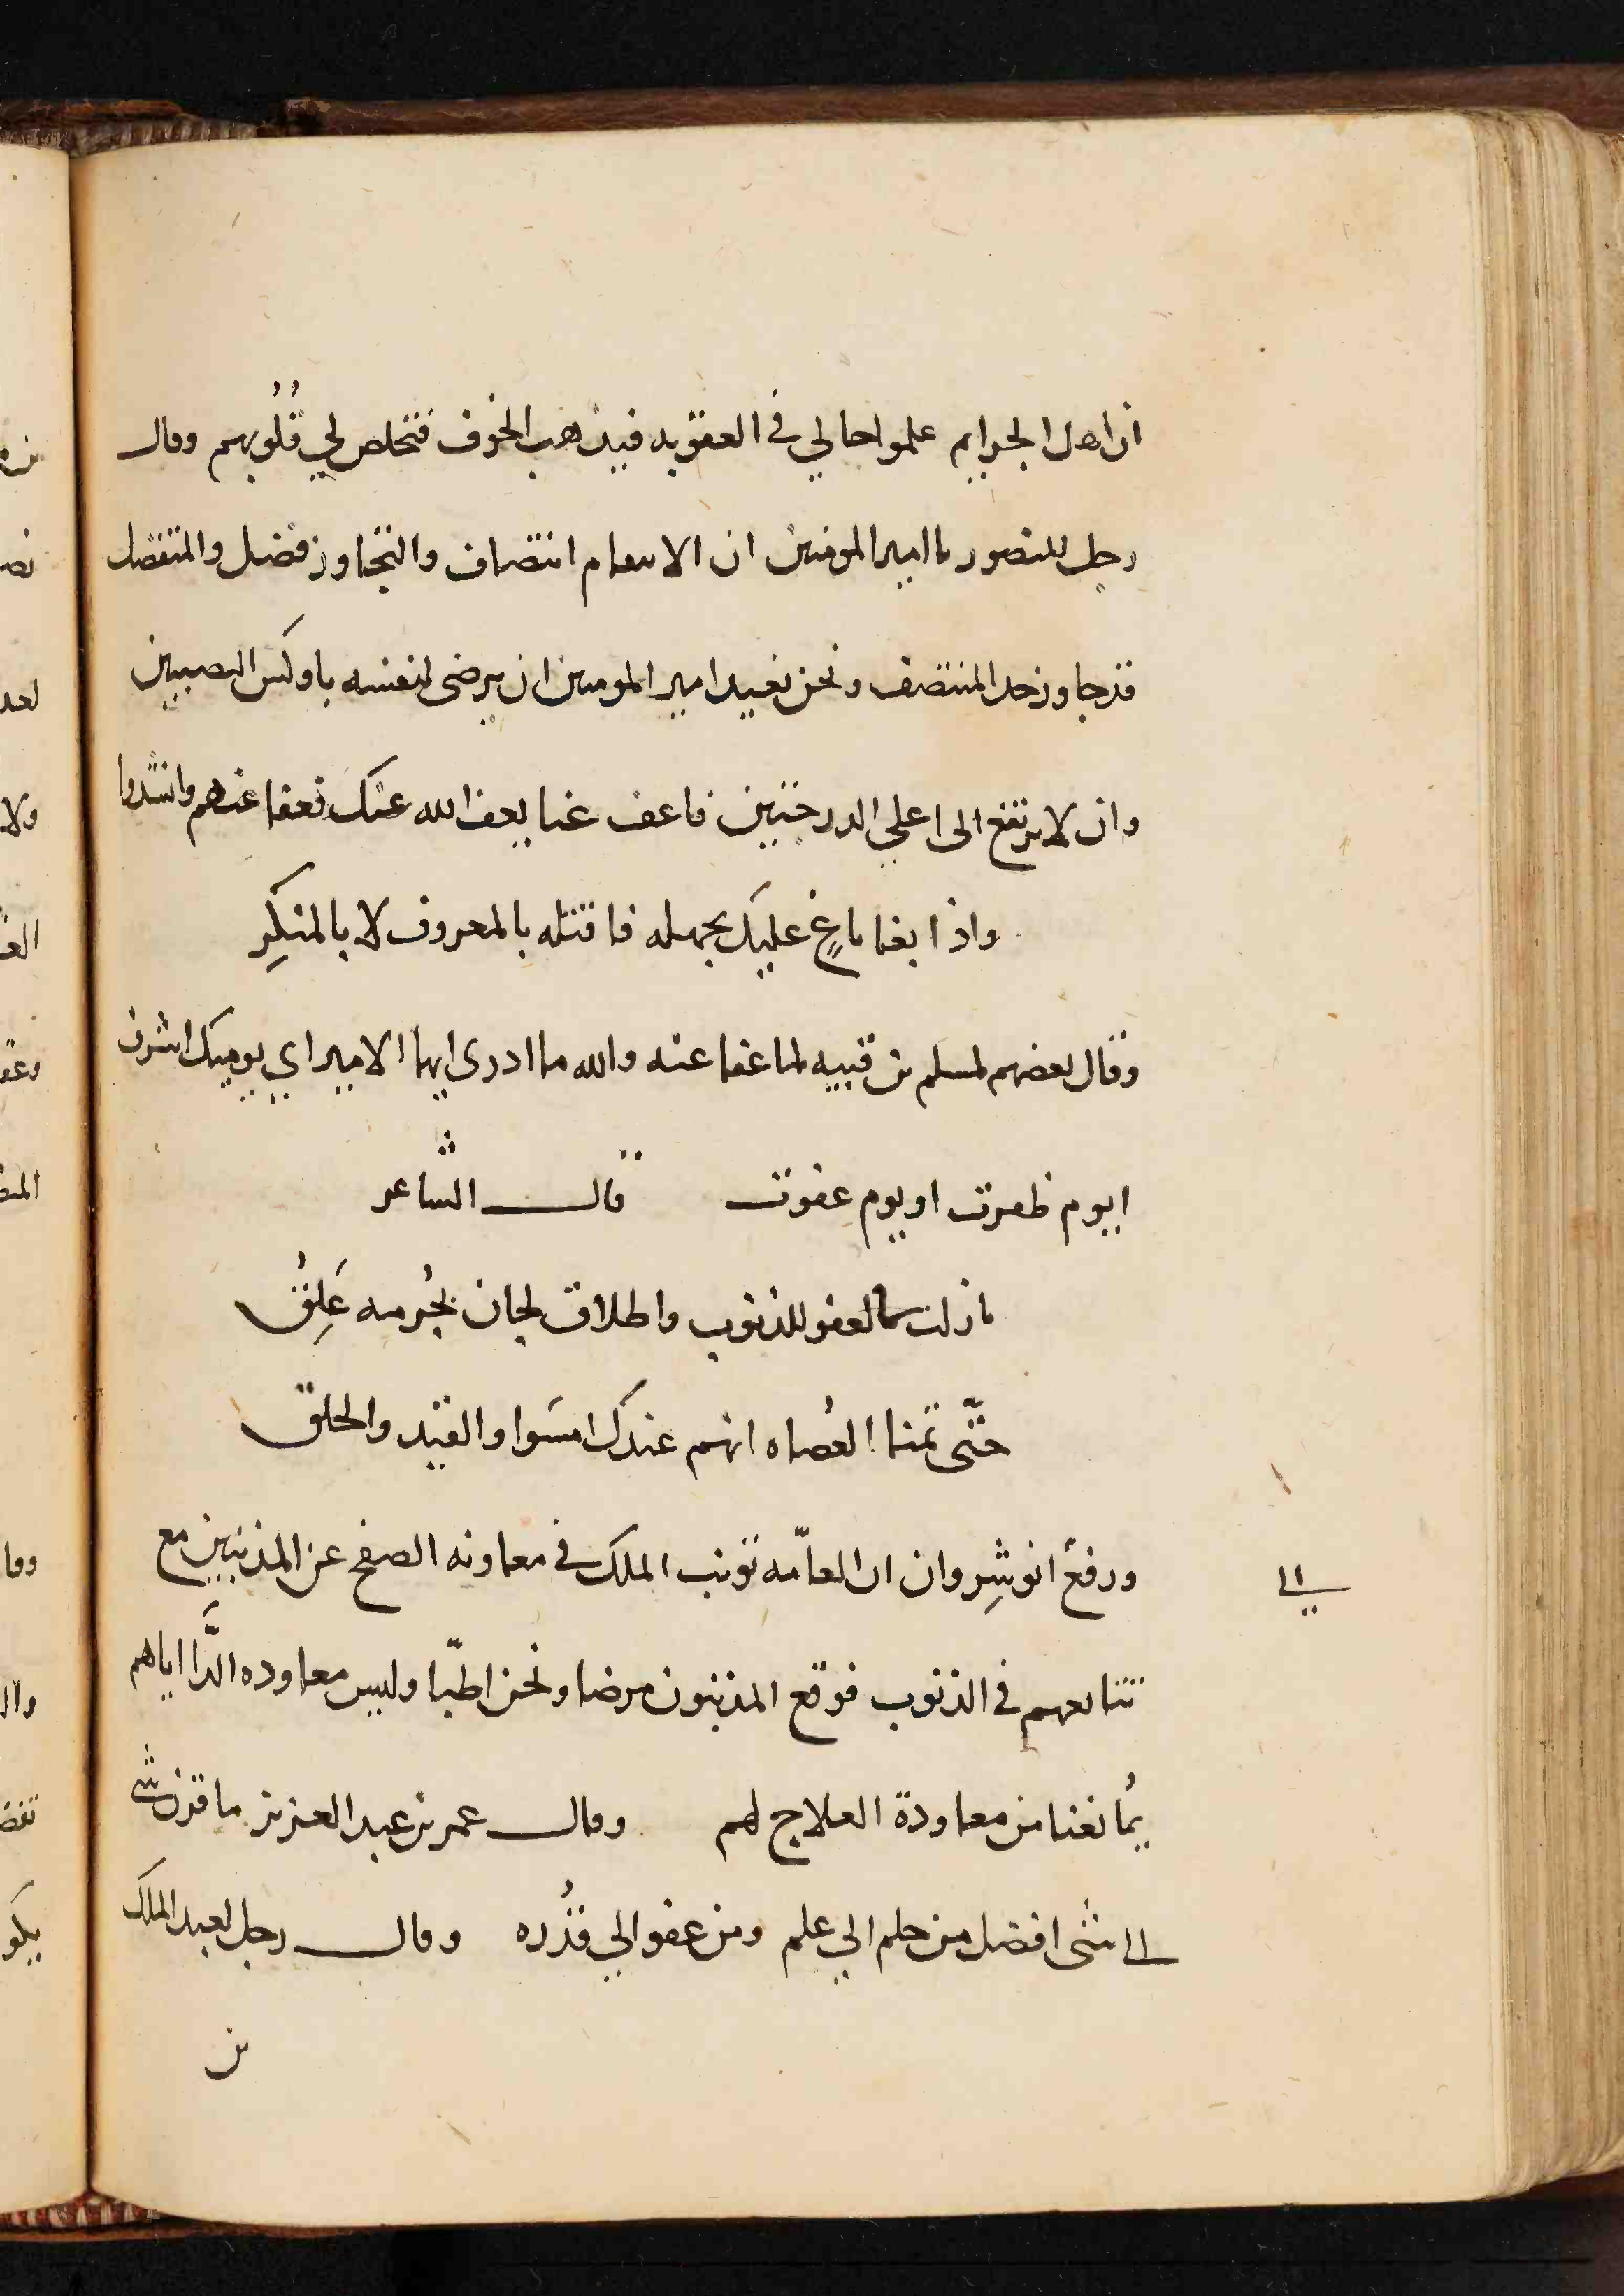 ان اهل الجرايم علموا حالي في العقوبه فيذهب الخوف فتخلص لي قُلُوبهم وقال
رجل للمنصور يا امير المومنين ان الانتقام انتصاف والتجاوز فضل والمتفضل
قد جاوز حد المنتصف ونحن نعيد امير المومنين ان يرضى لنفسه باوكس النصيبين
وان لا يرتفع الى اعلي الدرجتين فاعف عنا يعف الله عنك فعفا عنهم وانشدوا
واذا بغا باغٍ عليك بجهله فاقتله بالمعروف لا بالمنكِرِ
وقال بعضهم لمسلم بن قتيبه لما عفا عنه والله ما ادرى ايها الامير اي يوميك اشرف
ايوم ظفرت او يوم عفوت قال الشاعر
ما زلت بالعفو للذنوب واطلاق لجان بجُرمه عَلِقُ
حتّى تمنا العُصاه انهم عندك امسَوا والقيد والحلق
ورفع انوشِروان ان العامّه تونب الملك في معاونه الصفح عن المذنبين مع
تتابعهم في الذنوب فوقع المذنبون مرضا ونحن اطبّا وليس معاوده الدَّا اياهم
يُمانعنا من معاودة العلاج لهم وقال عمر بن عبد العزيز ما قرن شي
الى شى افضل من حلم الي علم ومن عفو الي قُدره وقال رجل لعبد الملك
بن
الي